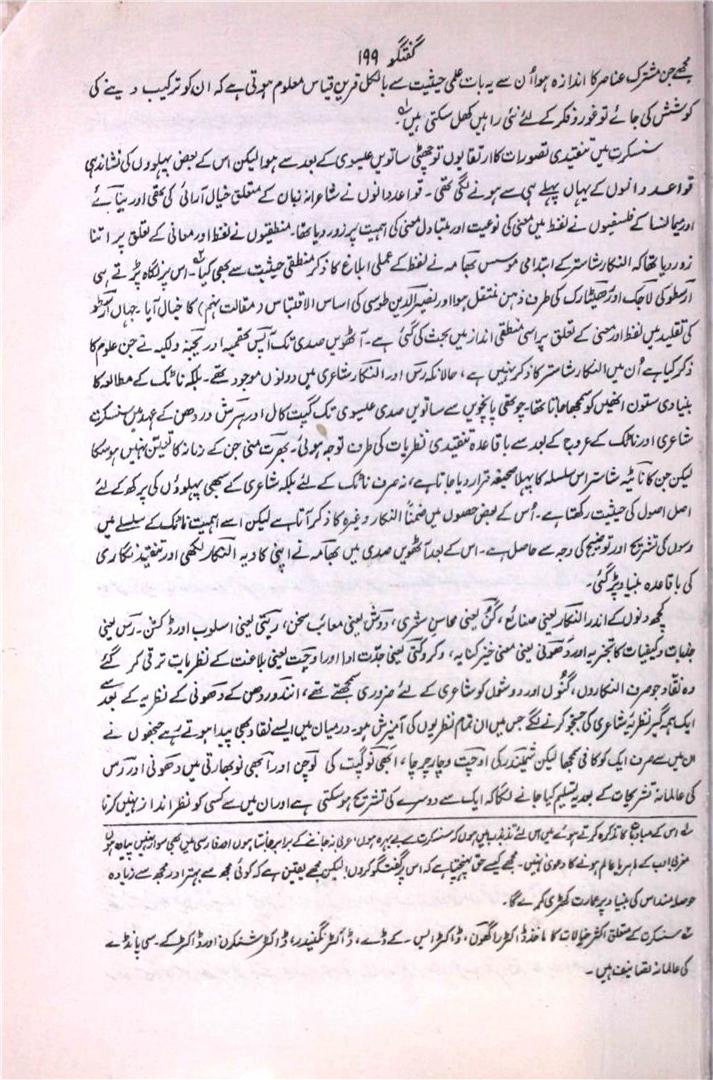 گفتگو ۱۹۹
مجھے جن مشترک عناصر کا اندازہ ہوا اُن سے یہ بات علمی حیثیت سے بالکل قرینِ قیاس معلوم ہوتی ہے کہ ان کو ترکیب دینے کی
کوشش کی جائے تو غور و فکر کے لئے نئی راہیں کھل سکتی ہیں۔
سنسکرت میں تنقیدی تصورات کا ارتقا یوں تو چھٹی ساتویں عیسوی کے بعد سے ہوا لیکن اس کے بعض پہلوؤں کی نشاندہی
قواعد دانوں کے یہاں پہلے ہی سے ہونے لگی تھی۔ قواعد دانوں نے شاعرانہ زبان کے متعلق خیال آرائی کی تھی اور نیائے
اور میمانسا کے فلسفیوں نے لفظ میں معنی کی نوعیت اور متبادل معنی کی اہمیت پر زور دیا تھا۔ منطقیوں نے لفظ اور معانی کے تعلق پر اتنا
زور دیا تھا کہ النکار شاستر کے ابتدائی مؤسس بھامہ نے لفظ کے عملی ابلاغ کا ذکر منطقی حیثیت سے بھی کیا۔ اس پر نگاہ پڑتے ہی
ارسطو کی لاجک اور رھیٹارک کی طرف ذہن منتقل ہوا اور نصیر الدین طوسی کی اساس الاقتباس (مقالت نہم) کا خیال آیا۔ جہاں ارسطو
کی تقلید میں لفظ اور معنی کے تعلق پر اسی منطقی انداز میں بحث کی گئی ہے۔ آٹھویں صدی تک اور یجنہ ولکیہ نے جن علوم کا
ذکر کیا ہے اُن میں النکار شاستر کا ذکر نہیں ہے، حالانکہ رس اور النکار شاعری میں دونوں موجود تھے۔ بلکہ ناٹک کے مطالعہ کا
بنیادی ستون انھیں کو سمجھا جاتا تھا۔ چوتھی پانچویں سے ساتویں صدی عیسوی تک گپت کال اور ہرش وردھن کے عہد میں سنسکرت
شاعری اور ناٹک کے عروج کے بعد سے باقاعدہ تنقیدی نظریات کی طرف توجہ ہوئی۔ بھرت منی جن کے زمانہ کا تعین نہیں ہو سکا
لیکن جن کا ناٹیہ شاستر اس سلسلہ کا پہلا صحیفہ قرار دیا جاتا ہے، نہ صرف ناٹک کے لئے بلکہ شاعری کے سبھی پہلوؤں کی پرکھ کے لئے
اصل اصول کی حیثیت رکھتا ہے۔ اُس کے بعض حصوں میں ضمناً النکار وغیرہ کا ذکر آتا ہے لیکن اسے اہمیت ناٹک کے سلسلے میں
رسوں کی تشریح اور توضیح کی وجہ سے حاصل ہے۔ اس کے بعد آٹھویں صدی میں بھامہ نے اپنی کاویہ النکار لکھی اور تنقید نگاری
کی باقاعدہ بنیاد پڑ گئی۔
کچھ دنوں کے اندر النکار یعنی صنائع، گُن یعنی محاسنِ شعری، دوش یعنی معائب سخن، ریتی یعنی اسلوب اور ڈکشن۔ رس یعنی
جذبات و کیفیات کا تجزیہ اور دھونی یعنی معنی خیز کنایہ، وکروکتی یعنی جدّت ادا اور اوچت یعنی بلاغت کے نظریات ترقی کر گئے
وہ نقاد جو صرف النکاروں، گنوں اور دوشوں کو شاعری کے لئے ضروری سمجھتے تھے، آنندوردھن کے دھونی کے نظریہ کے بعد سے
ایک ہمہ گیر نظریۂ شاعری کی جستجو کرنے لگے جس میں ان تمام نظریوں کی آمیزش ہو۔ درمیان میں ایسے نقاد بھی پیدا ہوتے رہے جنھوں نے
ان میں سے صرف ایک کو کافی سمجھا لیکن شمیندر کی اوچت وچار چرچا، ابھی نو گپت کی لوچن اور ابھی نو بھارتی میں دھونی اور رس
کی عالمانہ تشریحات کے بعد یہ تسلیم کیا جانے لگا کہ ایک سے دوسرے کی تشریح ہو سکتی ہے اور ان میں سے کسی کو نظر انداز نہیں کرنا
اس کے مباحث کا تذکرہ کرتے ہوئے میں اس لئے تذبذب میں ہوں کہ سنسکرت سے بے بہرہ ہوں، عربی نہ جاننے کے برابر جانتا ہوں اور فارسی میں بھی پیادہ ہوں
مغربی ادب کے ماہر یا عالم ہونے کا دعویٰ نہیں۔ مجھے کیسے حق پہنچتا ہے کہ اس پر گفتگو کروں! لیکن مجھے یقین ہے کہ کوئی مجھ سے بہتر اور مجھ سے زیادہ
حوصلہ مند اس کی بنیاد پر عمارت کھڑی کرے گا۔
سنسکرت کے متعلق اکثر خیالات کا ماخذ ڈاکٹر راگھون، ڈاکٹر ایس۔ کے ڈے، ڈاکٹر نگیندر، ڈاکٹر شنکرن اور ڈاکٹر کے۔ سی پانڈے
کی عالمانہ تصانیف ہیں۔